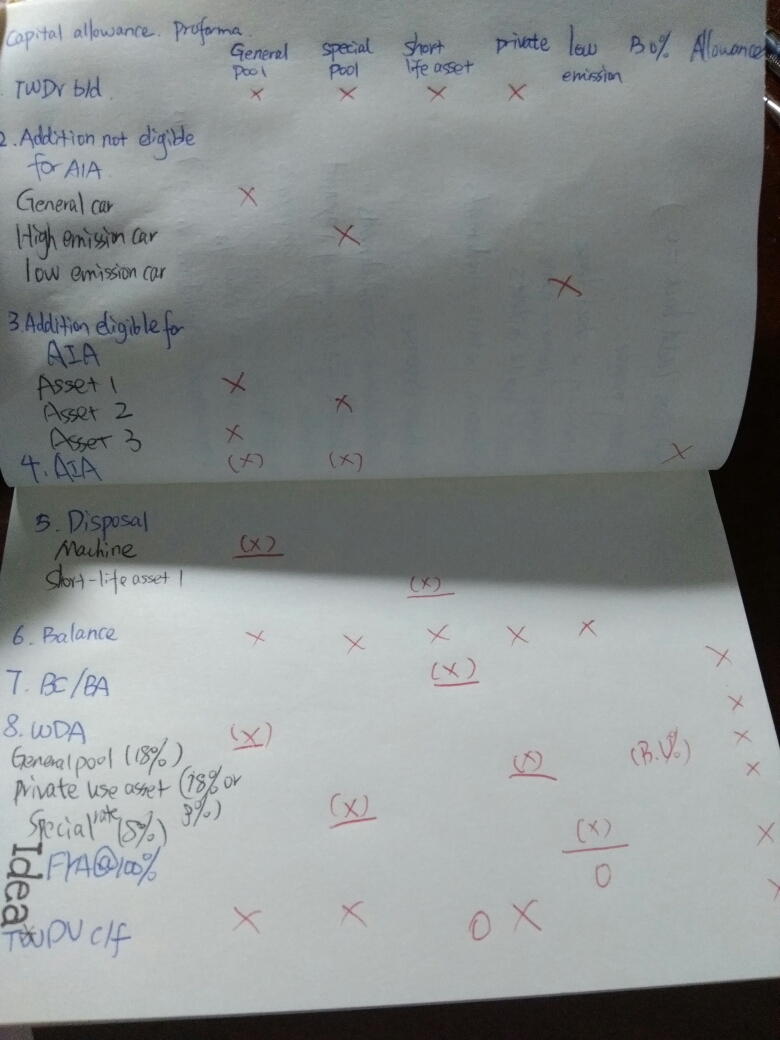 Capital allowance. Proforma.
General pool special pool short life asset private low emission B0% Allowance
TWDV b/d x x x x
2. Addition not eligible
for AIA
General car x
High emission car x
low emission car x
3. Addition eligible for
AIA
Asset 1 x
Asset 2 x
Asset 3 x
4. AIA (x) (x) x
5. Disposal
Machine (x)
Short-life asset 1 (x)
6. Balance x x x x x
7. BC/BA (x) x
8. WDA (x) x
General pool (18%) (x) (B.U%) x
private use asset (18% or 8%) x
Special rate (8%) (x)
FYA@100% (x) x
0
Idea
TWDV c/f x x 0 x x